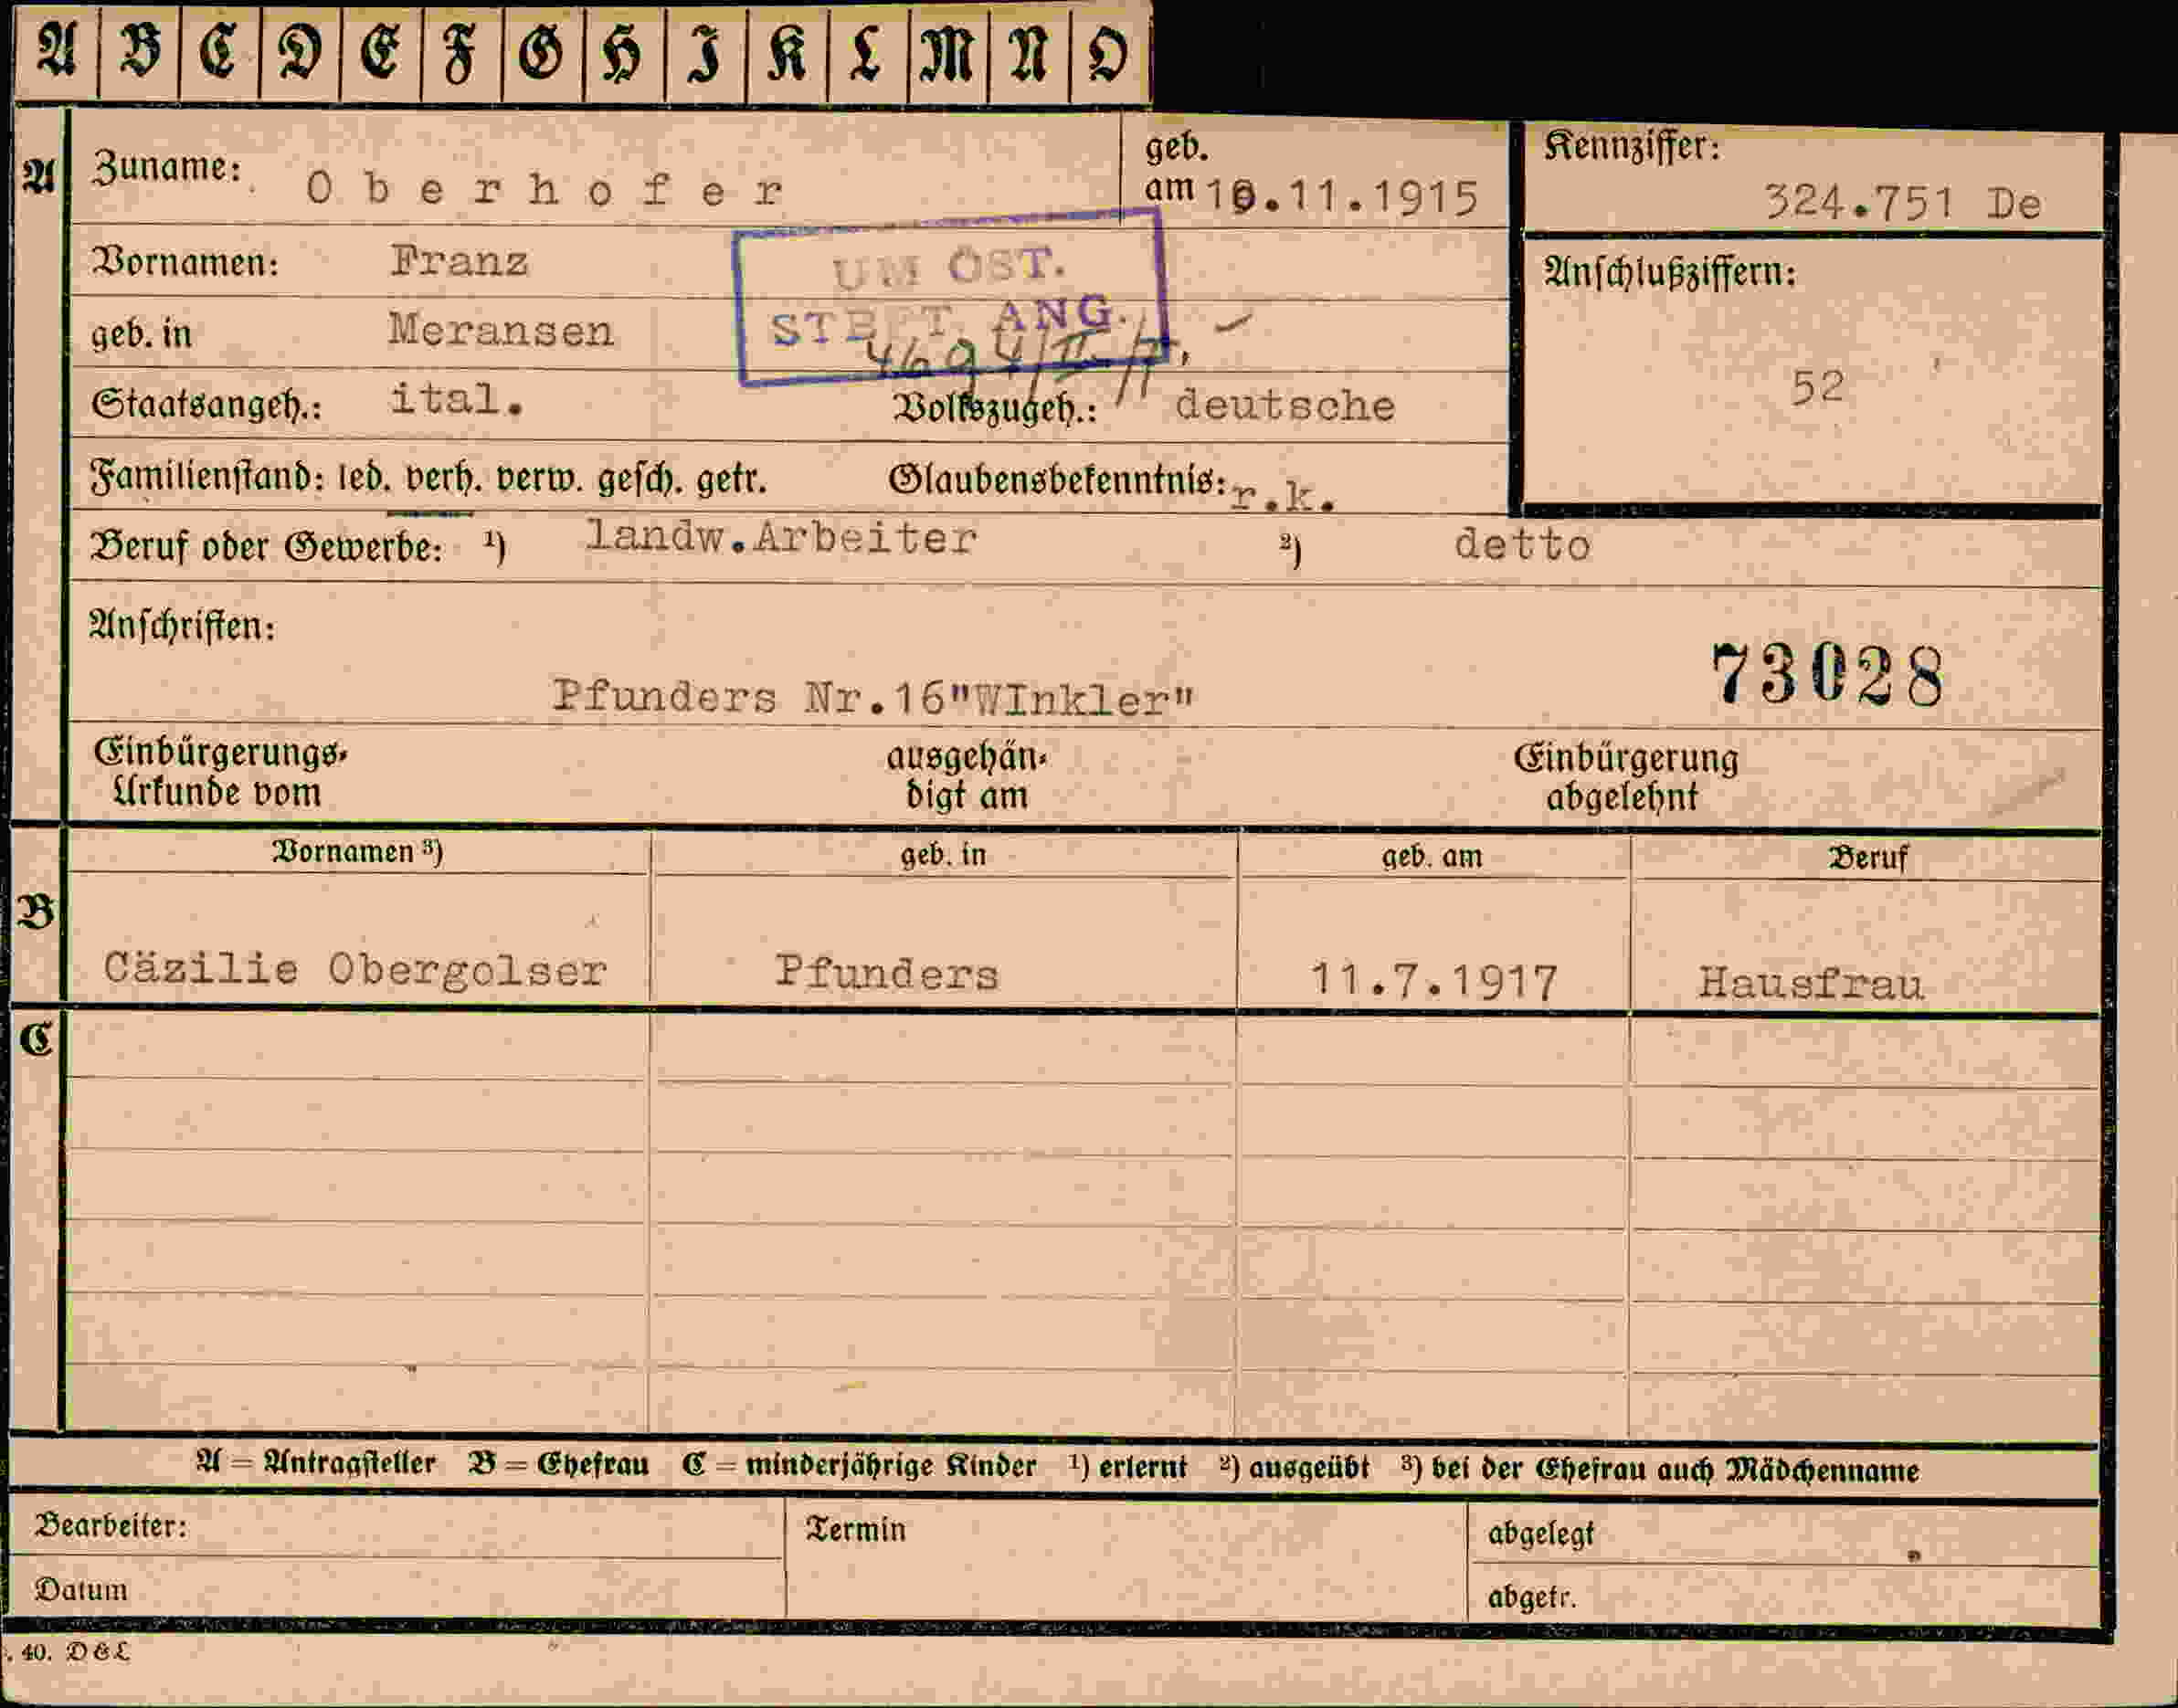 A B C D E F G H I K L M N O
A Zuname: Oberhofer geb. am 10.11.1915 Kennziffer: 324.751 De
Vornamen: Franz
UM ÖST.
geb. in Meransen
ANG.
Anschlußziffern: 52
Staatsangeh.: ital. Volkszugeh.: deutsche
Familienstand: led. verh. verw. gesch. getr. Glaubensbekenntnis: r.k.
Beruf oder Gewerbe: ¹) landw.Arbeiter ²) detto
Anschriften:
Pfunders Nr.16"WInkler" 73028
Einbürgerungs- ausgehän- Einbürgerung
Urkunde vom digt am abgelehnt
Vornamen ³) geb. in geb. am Beruf
B
Cäzilie Obergolser Pfunders 11.7.1917 Hausfrau
C
A = Antragsteller B = Ehefrau C = minderjährige Kinder ¹) erlernt ²) ausgeübt ³) bei der Ehefrau auch Mädchenname
Bearbeiter: Termin abgelegt
Datum abgetr.
. 40. D & L